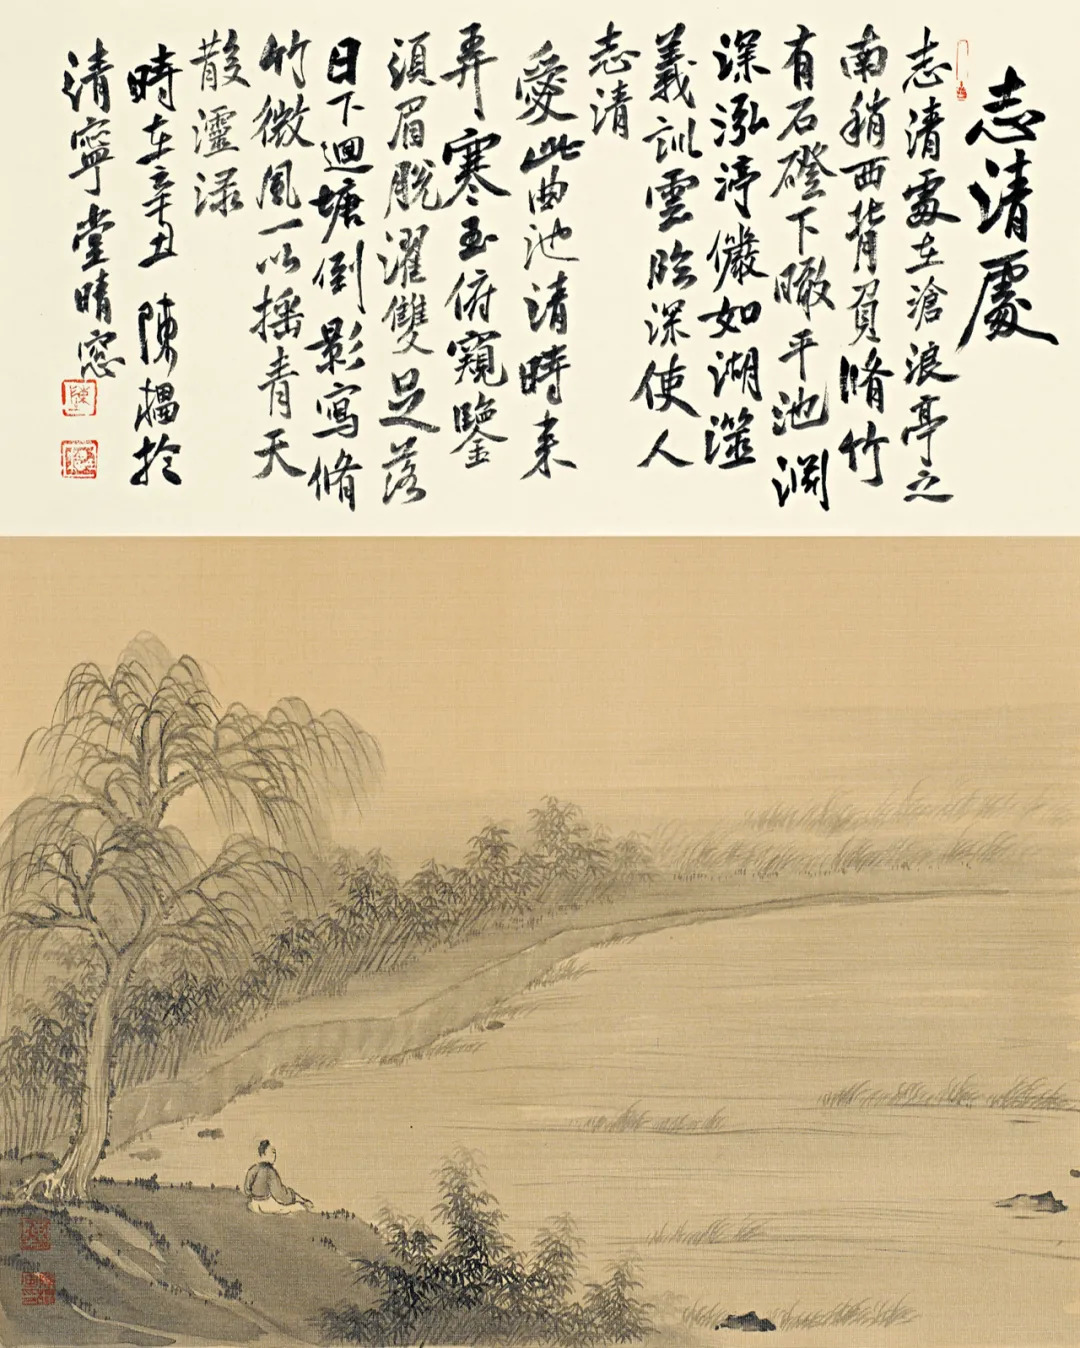 志清處
志清處在滄浪亭之
南稍西背負脩竹
有石磴下瞰平池淵
深泓渟儼如湖澨
義訓雲臨深使人
志清
愛此曲池清時来
弄寒玉俯窺鑒
須眉脱濯雙足落
日下迴塘倒影寫脩
竹微風一以摇青天
散渌
時在辛丑 陳於
清寧堂晴窓